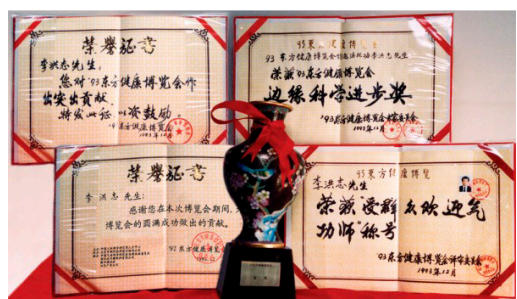 荣誉证书
李洪志先生：
您对'93东方健康博览会作
出突出贡献，
特发此证，以资鼓励。
'93东方健康博览会
1993年12月
93东方健康博览会
李洪志先生
荣获'93东方健康博览会
边缘科学进步奖
'93东方健康博览会评审委员会
1993年12月
荣誉证书
李洪志先生：
感谢您在本次博览会期间，为
博览会的圆满成功做出的贡献。
'92东方健康博览会
93东方健康博览
李洪志先生
荣获"受群众欢迎气
功师"称号
'93东方健康博览会评审委员会
1993年12月